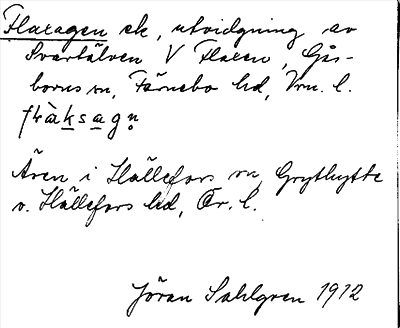 Flaxagen ek, utvidgning av
Svartälven V Flaxen, Gås-
borns sn, Färnebo hd, Vrm. l.
flàksagṇ
Även i Hällefors sn, Grythytte
o. Hällefors hd, Ör. l.
Jöran Sahlgren 1912